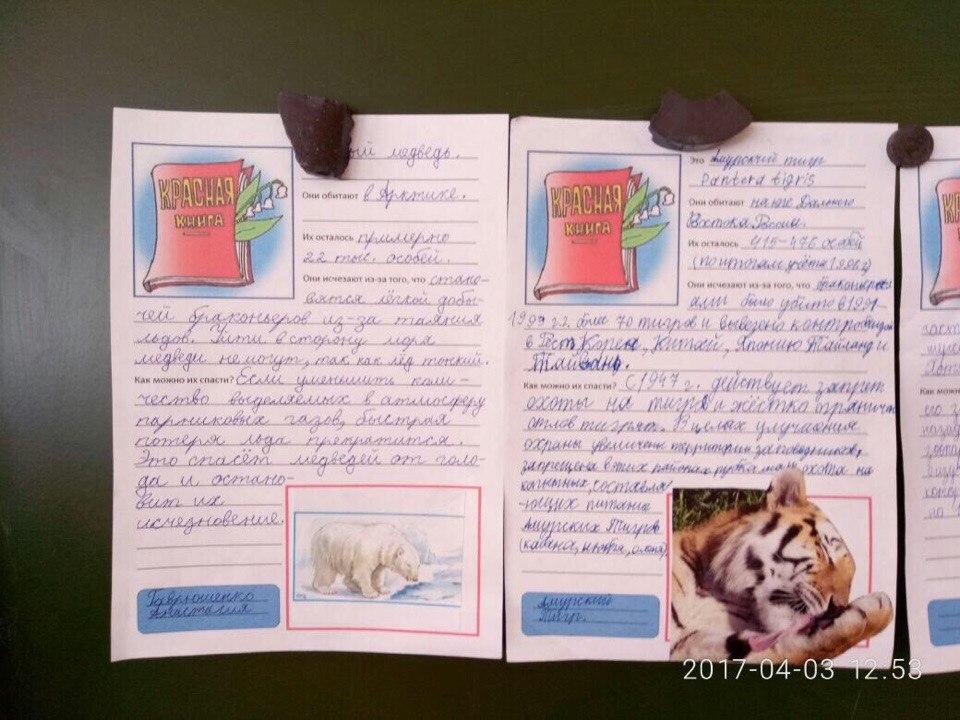 КРАСНАЯ
КНИГА
ый медведь.
Они обитают в Арктике.
Их осталось примерно
22 тыс. особей.
Они исчезают из-за того, что стано-
вятся лёгкой добы-
чей браконьеров из-за таяния
льдов. Уйти в сторону моря
медведи не могут, так как лёд тонкий.
Как можно их спасти? Если уменьшить коли-
чество выделяемых в атмосферу
парниковых газов, быстрая
потеря льда прекратится.
Это спасёт медведей от голо-
да и остано-
вит их
исчезновение.
Анастасия
КРАСНАЯ
КНИГА
Это Амурский тигр
Pantera tigris
Они обитают на юге Дальнего
Востока России.
Их осталось 415-476 особей
(по итогам учёта 1996 г)
Они исчезают из-за того, что
было убито в 1991-
1999 г.г. более 70 тигров и вывезено
в Корею, Китай, Японию Тайланд и
Тайвань.
Как можно их спасти? С 1947 г. действует запрет
охоты на тигров и жёстко ограничен
отлов тигрят. В целях улучшения
охраны увеличены территории заповедников,
запрещена в этих районах охота на
копытных, составля
ющих питание
Амурских Тигров
(кабана, оленя)
Амурский
Тигр.